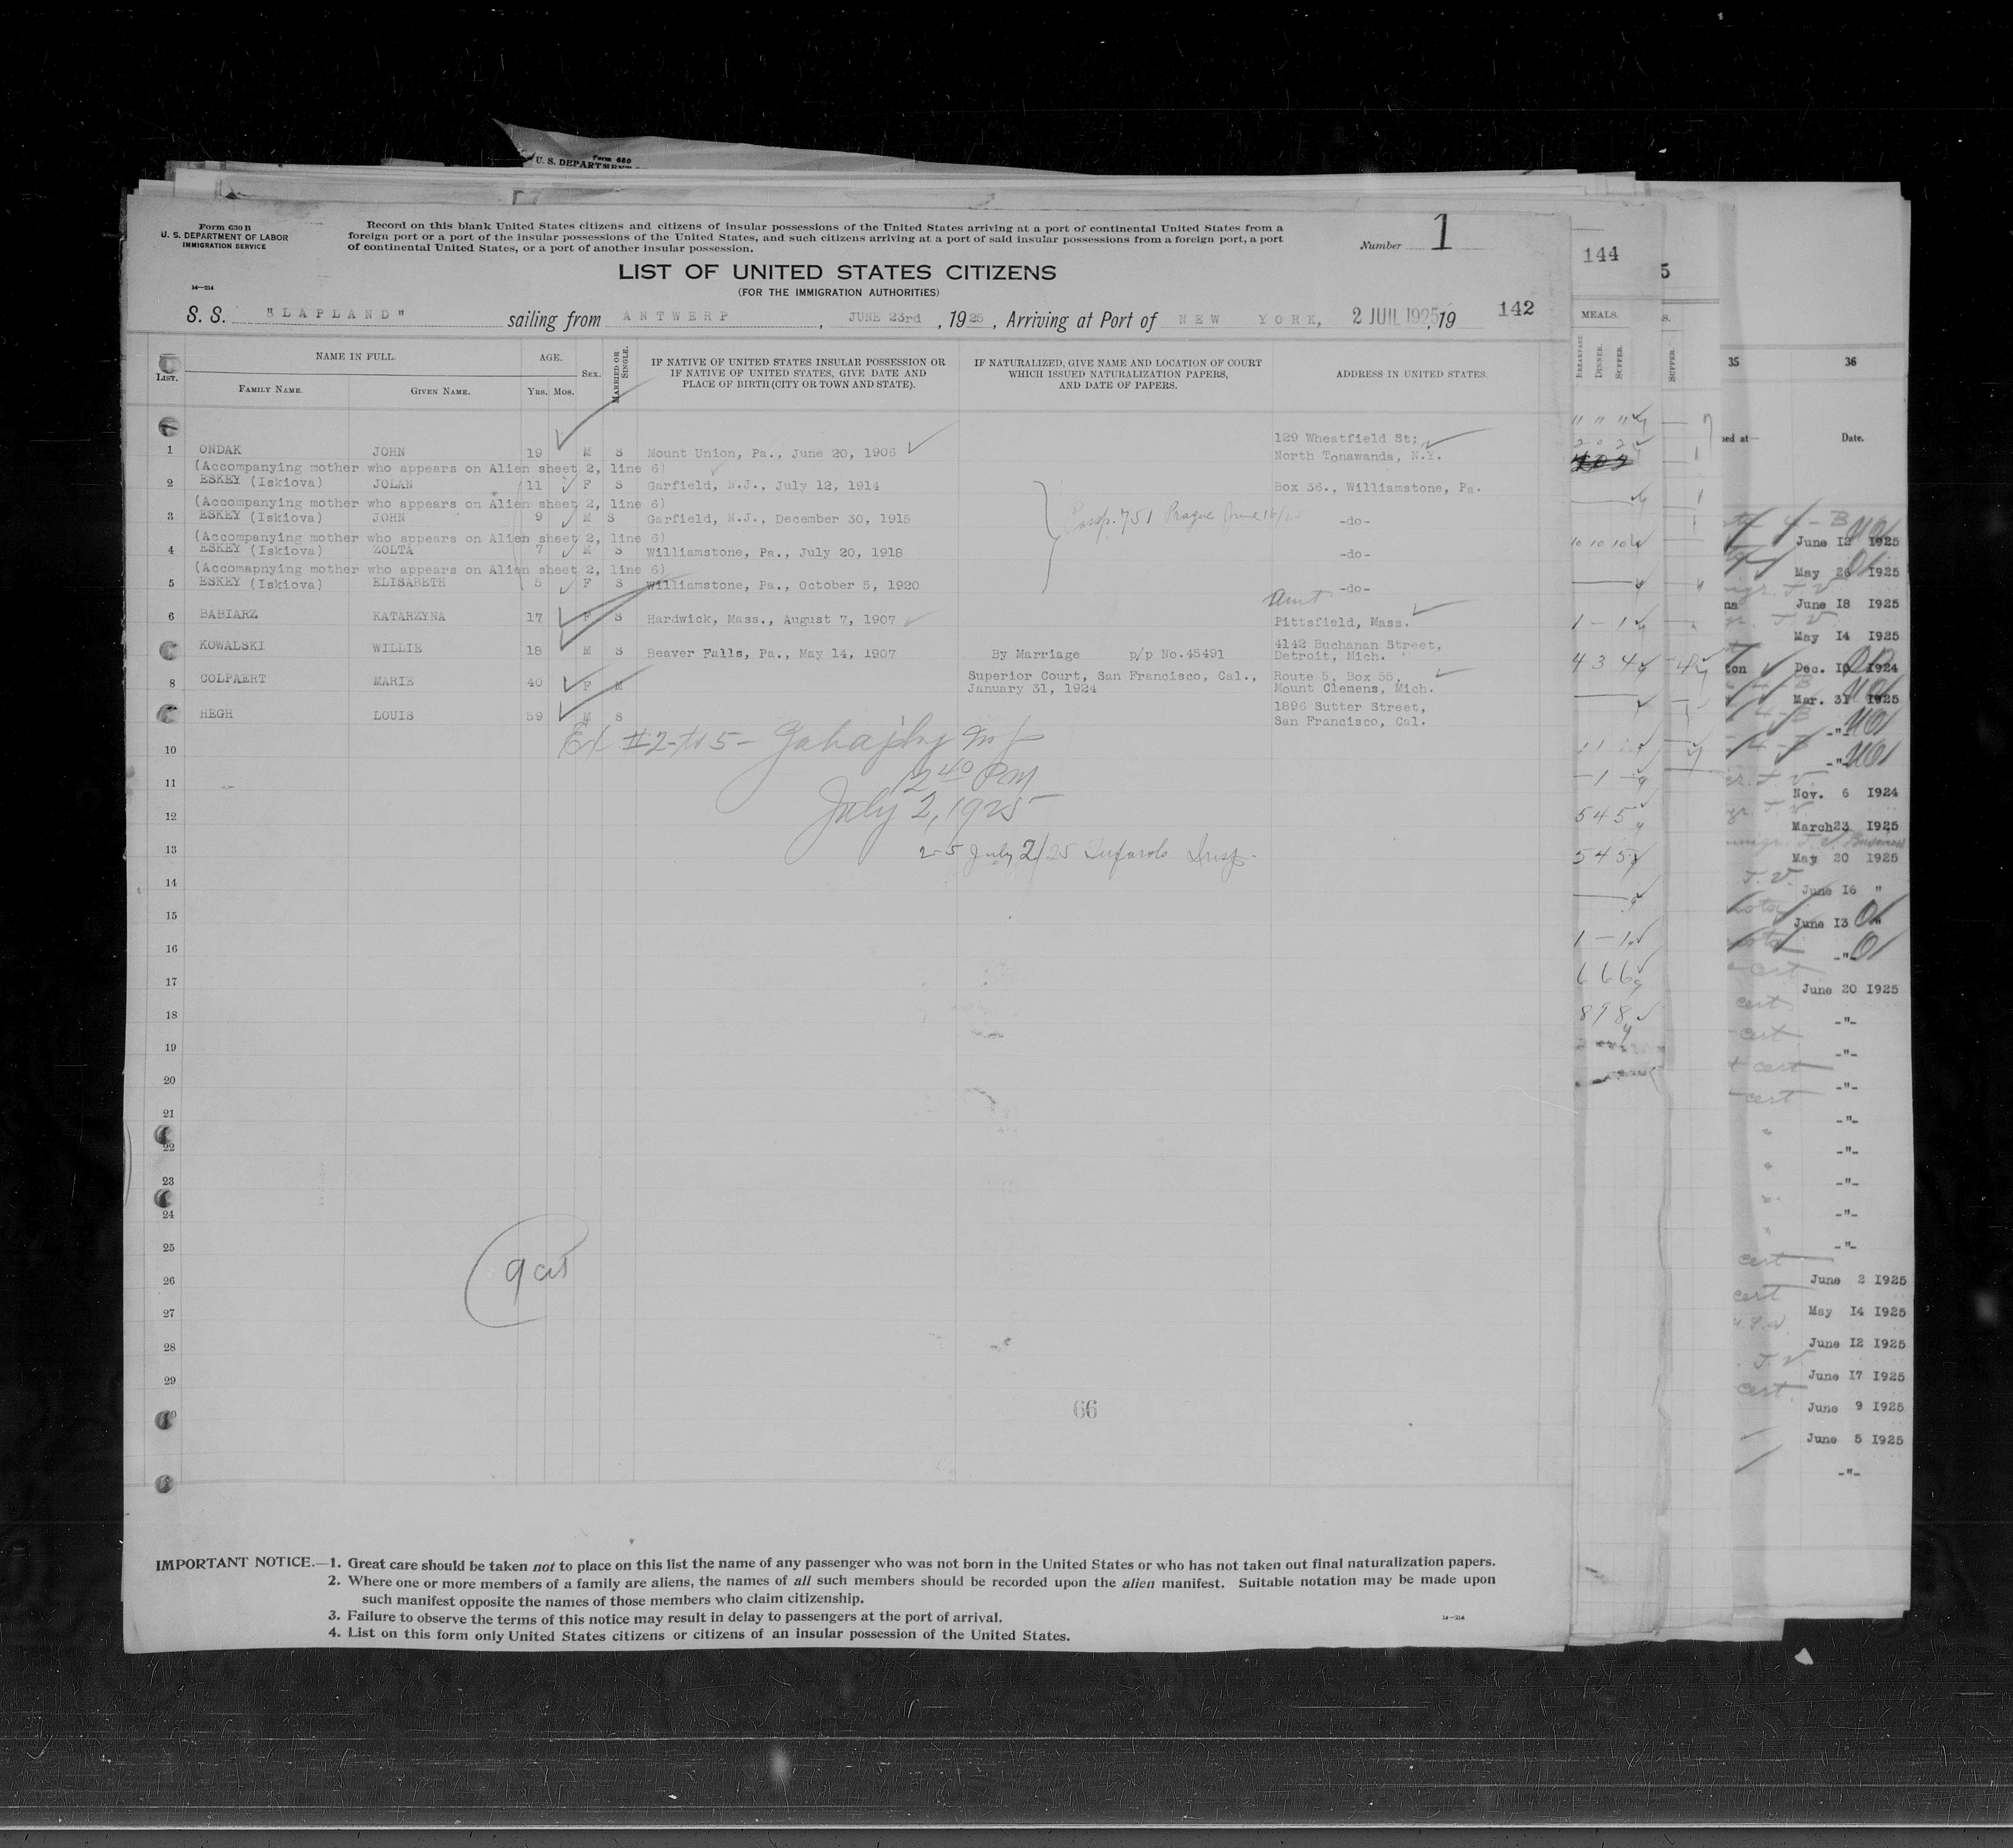 Form 680
U. S. DEPARTMENT
Form 630 B
U. S. DEPARTMENT OF LABOR
IMMIGRATION SERVICE
14—214
Record on this blank United States citizens and citizens of insular possessions of the United States arriving at a port of continental United States from a
foreign port or a port of the insular possessions of the United States, and such citizens arriving at a port of said insular possessions from a foreign port, a port
of continental United States, or a port of another insular possession.
Number 1
LIST OF UNITED STATES CITIZENS
(FOR THE IMMIGRATION AUTHORITIES)
S. S. "LAPLAND" sailing from ANTWERP, JUNE 23rd, 1925, Arriving at Port of NEW YORK, 2 JUIL 1925, 19 142
LIST. NAME IN FULL. AGE. SEX. MARRIED OR SINGLE. IF NATIVE OF UNITED STATES INSULAR POSSESSION OR IF NATIVE OF UNITED STATES, GIVE DATE AND PLACE OF BIRTH (CITY OR TOWN AND STATE). IF NATURALIZED, GIVE NAME AND LOCATION OF COURT WHICH ISSUED NATURALIZATION PAPERS, AND DATE OF PAPERS. ADDRESS IN UNITED STATES.
FAMILY NAME. GIVEN NAME. YRS. MOS.
129 Wheatfield St;
1 ONDAK JOHN 19 M S Mount Union, Pa., June 20, 1906 North Tonawanda, N.Y.
(Accompanying mother who appears on Alien sheet 2, line 6)
2 ESKEY (Iskiova) JOLAN 11 F S Garfield, N.J., July 12, 1914 Box 36., Williamstone, Pa.
(Accompanying mother who appears on Alien sheet 2, line 6)
3 ESKEY (Iskiova) JOHN 9 M S Garfield, N.J., December 30, 1915 751 Prague June 16/25 -do-
(Accompanying mother who appears on Alien sheet 2, line 6)
4 ESKEY (Iskiova) ZOLTA 7 M S Williamstone, Pa., July 20, 1918 -do-
(Accomapnying mother who appears on Alien sheet 2, line 6)
5 ESKEY (Iskiova) ELISABETH 5 F S Williamstone, Pa., October 5, 1920 -do-
Aunt
6 BABIARZ KATARZYNA 17 F S Hardwick, Mass., August 7, 1907 Pittsfield, Mass.
KOWALSKI WILLIE 18 M S Beaver Falls, Pa., May 14, 1907 4142 Buchanan Street,
By Marriage p/p No.45491 Detroit, Mich.
8 COLPAERT MARIE 40 F M Superior Court, San Francisco, Cal., Route 5, Box 55,
January 31, 1924 Mount Clemens, Mich.
HEGH LOUIS 59 M S 1896 Sutter Street,
San Francisco, Cal.
Ex #2-to 5-
10
2 40 PM
11
July 2, 1925
12
13 2-5 July 2/25 Insp.
14
15
16
17
18
19
20
21
22
23
24
25
9 cits
26
27
28
29
66
IMPORTANT NOTICE.—1. Great care should be taken not to place on this list the name of any passenger who was not born in the United States or who has not taken out final naturalization papers.
2. Where one or more members of a family are aliens, the names of all such members should be recorded upon the alien manifest. Suitable notation may be made upon
such manifest opposite the names of those members who claim citizenship.
3. Failure to observe the terms of this notice may result in delay to passengers at the port of arrival.
4. List on this form only United States citizens or citizens of an insular possession of the United States.
14—214
144
MEALS.
BREAKFAST DINNER. SUPPER.
" " "
2 0 2
10 10 10
1 - 1
4 3 4
- 1 -
5 4 5
5 4 5
1 - 1
6 6 6
8 9 8
5
S.
SUPPER.
35 36
Date.
June 12 1925
May 26 1925
June 18 1925
May 14 1925
Dec. 10 1924
Mar. 31 1925
-"-
-"-
Nov. 6 1924
March23 1925
May 20 1925
T. V.
June 16 "
June 13 "
-"-
cert
June 20 1925
cert
-"-
cert
-"-
cert
-"-
cert
-"-
-"-
-"-
-"-
-"-
cert
June 2 1925
cert
May 14 1925
June 12 1925
T. V
June 17 1925
cert
June 9 1925
June 5 1925
-"-